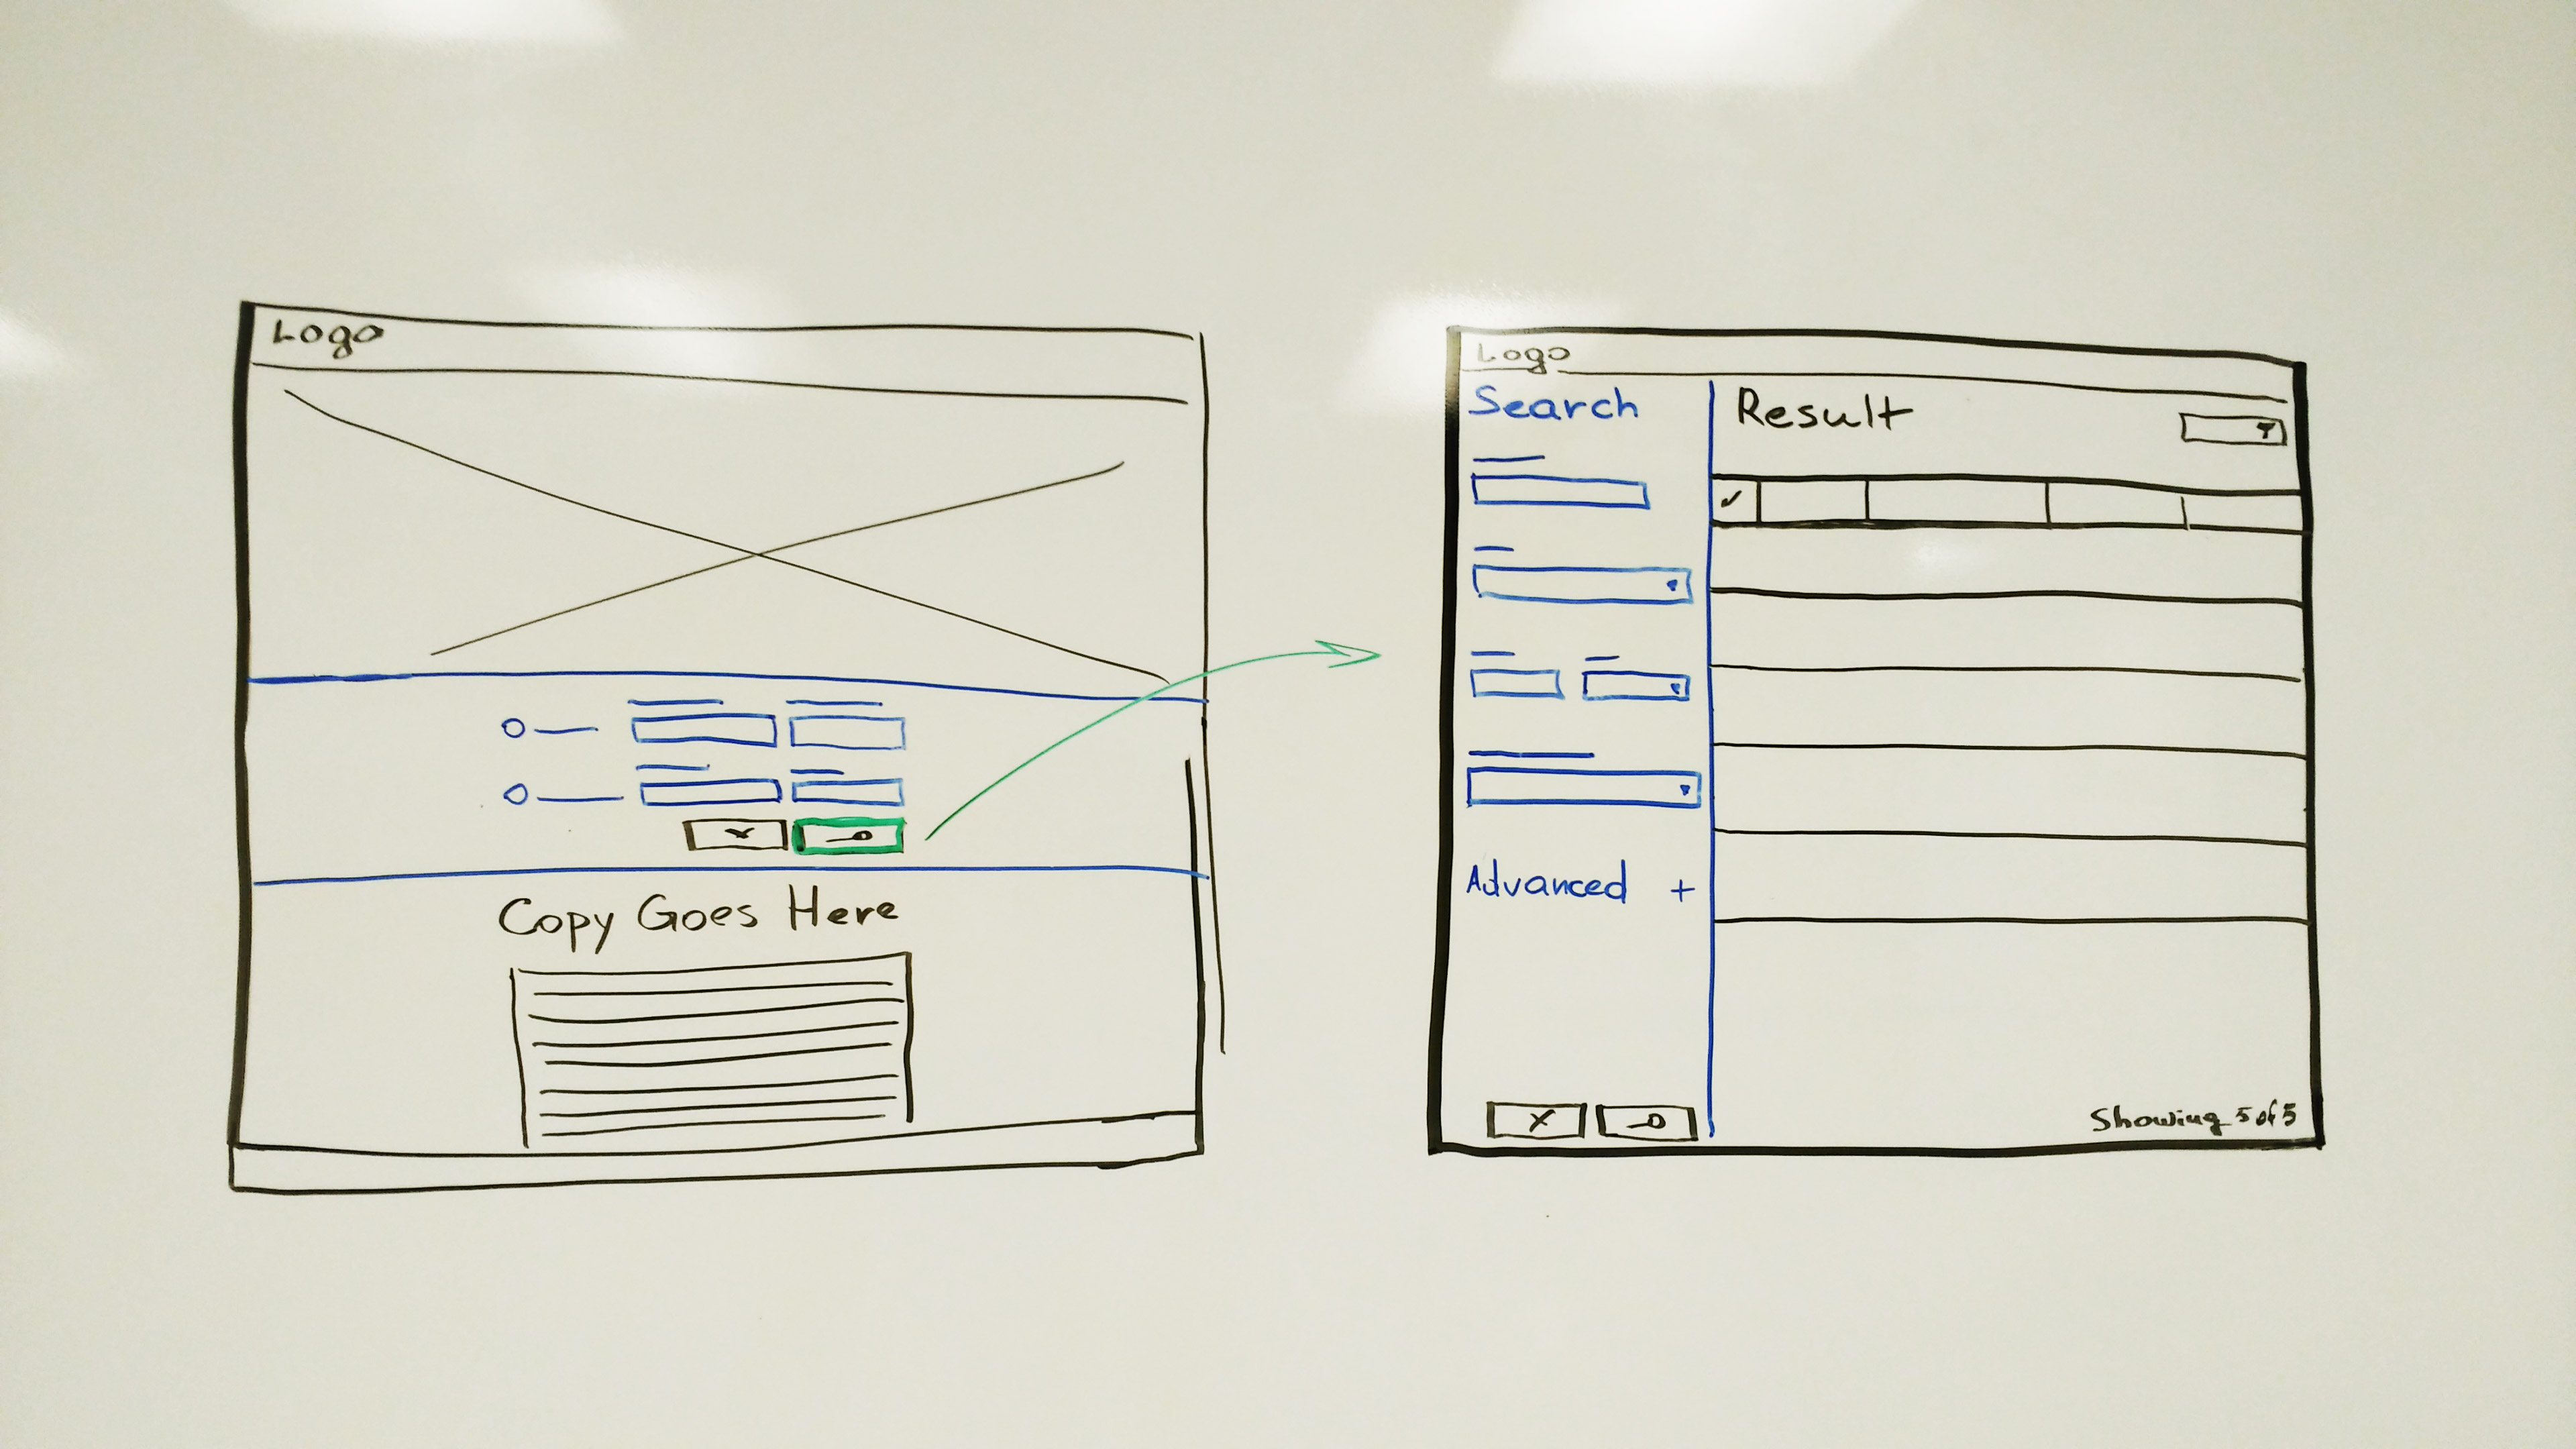 Logo
Copy Goes Here
Logo
Search
Advanced +
Result
Showing 5 of 5